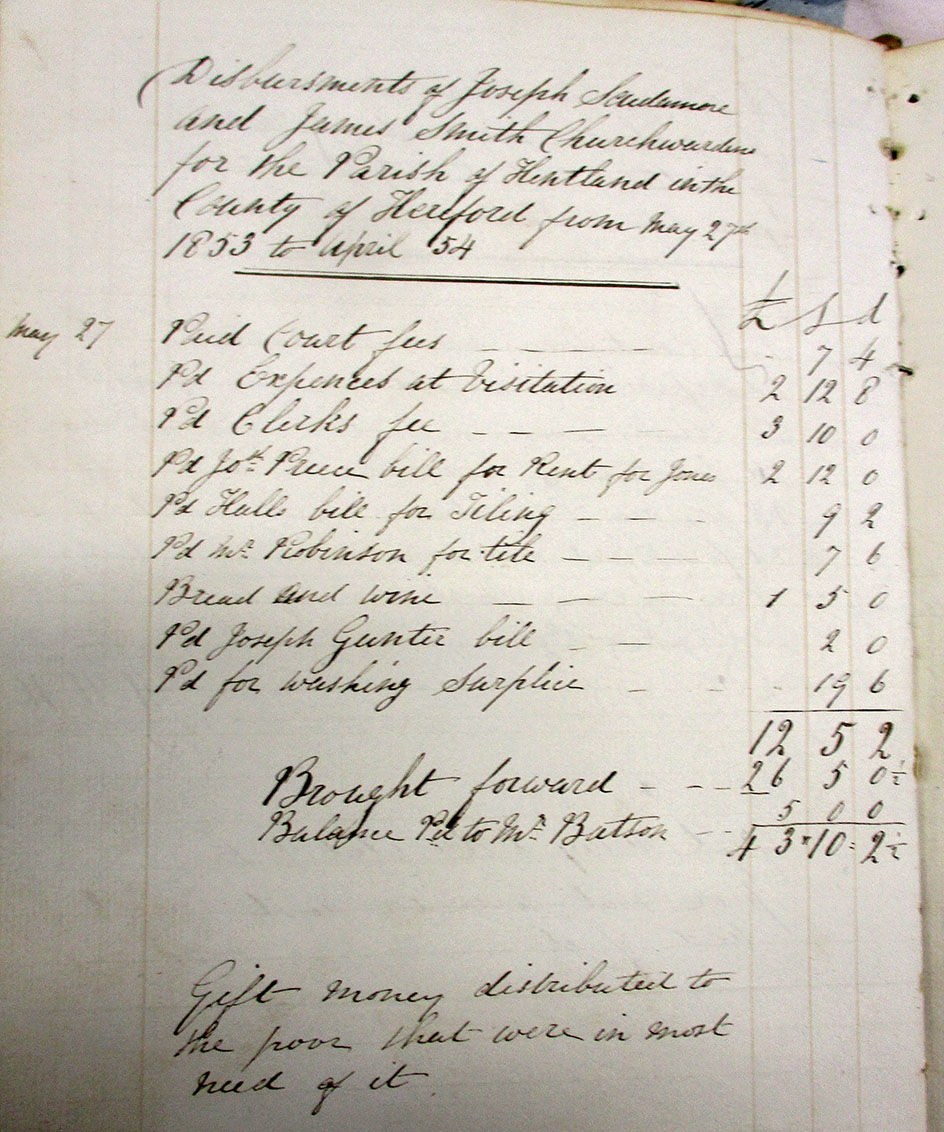 Disbursments of Joseph Scudamore
and James Smith Churchwardens
for the Parish of Hentland in the
County of Hereford from May 27th
1853 to April 54
£ s d
May 27 Paid Court fees - 7 4
Pd Expences at Visitation 2 12 8
Pd Clerks fee 3 10 0
Pd Josh Preece bill for Rent for Jones 2 12 0
Pd Halls bill for Tiling 9 2
Pd Mr Robinson for tile 7 6
Bread and wine 1 5 0
Pd Joseph Gunter bill 2 0
Pd for washing Surplice 19 6
12 5 2
Brought forward 26 5 0½
Balance Pd to Mr Batson 5 0 0
43 " 10 : 2½
Gift money distributed to
the poor that were in most
need of it